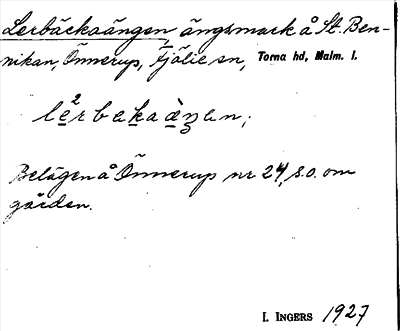 Lerbäckaängen, ängsmark å St. Ben-
nikan, Önnerup, Fjälie sn, Torna hd, Malm. l.
Belägen å Önnerup nr 24, s.o. om
gården.
I. INGERS 1927